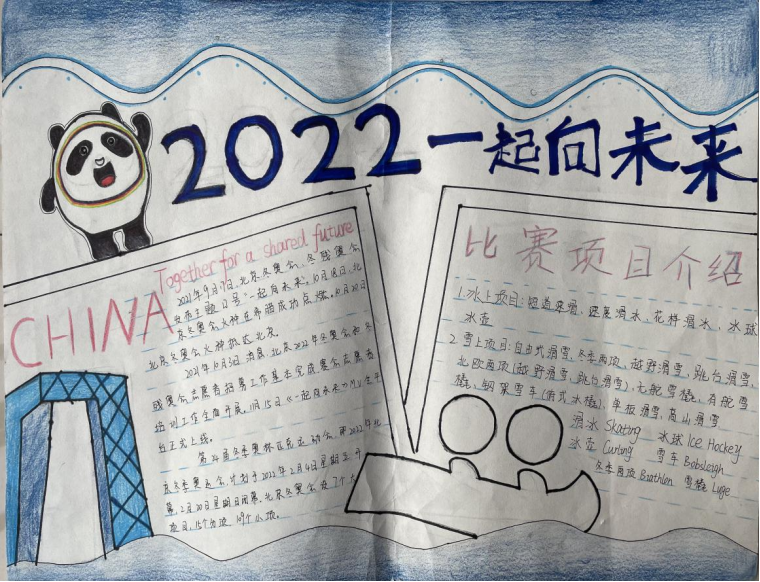 2022一起向未来
Together for a shared future
CHINA
2021年9月17日,北京冬奥会、冬残奥会
发布主题口号“一起向未来”。10月18日,北
京冬奥会火种在希腊成功点燃。10月20日
北京冬奥会火种抵达北京
2021年10月3日消息,北京2022年冬奥会和冬
残奥会志愿者招募工作基本完成赛会志愿者
培训工作全面开展。11月15日《一起向未来》MV全平
台正式上线。
第24届冬季奥林匹克运动会,即2022年北
京冬季奥运会,计划于2022年2月4日星期五开
幕,2月20日星期日闭幕,北京冬奥会设7个大
项目,15个分项 109个小项。
比赛项目介绍
1.冰上项目:短道速滑、速度滑冰、花样滑冰、冰球
冰壶
2.雪上项目:自由式滑雪、冬季两项、越野滑雪、跳台滑雪、
北欧两项(越野滑雪、跳台滑雪)、无舵雪橇、有舵雪
橇、钢架雪车(俯式冰橇)、单板滑雪、高山滑雪
滑冰 Skating 冰球 Ice Hockey
冰壶 Curling 雪车 Bobsleigh
冬季两项 Biathlon 雪橇 Luge